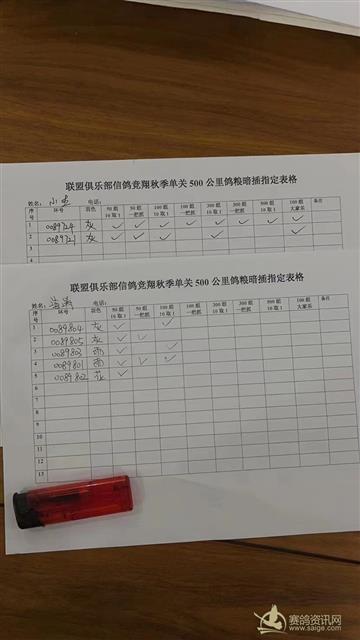 联盟俱乐部信鸽竞翔秋季单关 500 公里鸽粮暗插指定表格
姓名： 电话：
序号 环号 羽色 50 组 10 取 1 50 组 一把抓 100 组 10 取 1 100 组 一把抓 300 组 10 取 1 300 组 一把抓 500 组 10 取 1 100 组 大家乐 备注
1 0089724 灰 ✓ ✓ ✓ ✓ ✓ ✓ ✓ ✓
2 0089721 灰 ✓ ✓ ✓ ✓ ✓
联盟俱乐部信鸽竞翔秋季单关 500 公里鸽粮暗插指定表格
姓名： 电话：
序号 环号 羽色 50 组 10 取 1 50 组 一把抓 100 组 10 取 1 100 组 一把抓 300 组 10 取 1 300 组 一把抓 500 组 10 取 1 100 组 大家乐 备注
1 0089804 灰 ✓ ✓
2 0089805 灰 ✓ ✓
3 0089803 雨 ✓ ✓
4 0089801 雨 ✓ ✓ ✓
5 0089802 花 ✓
6
7
8
9
10
11
12
13
赛鸽资讯网
www.saige.com